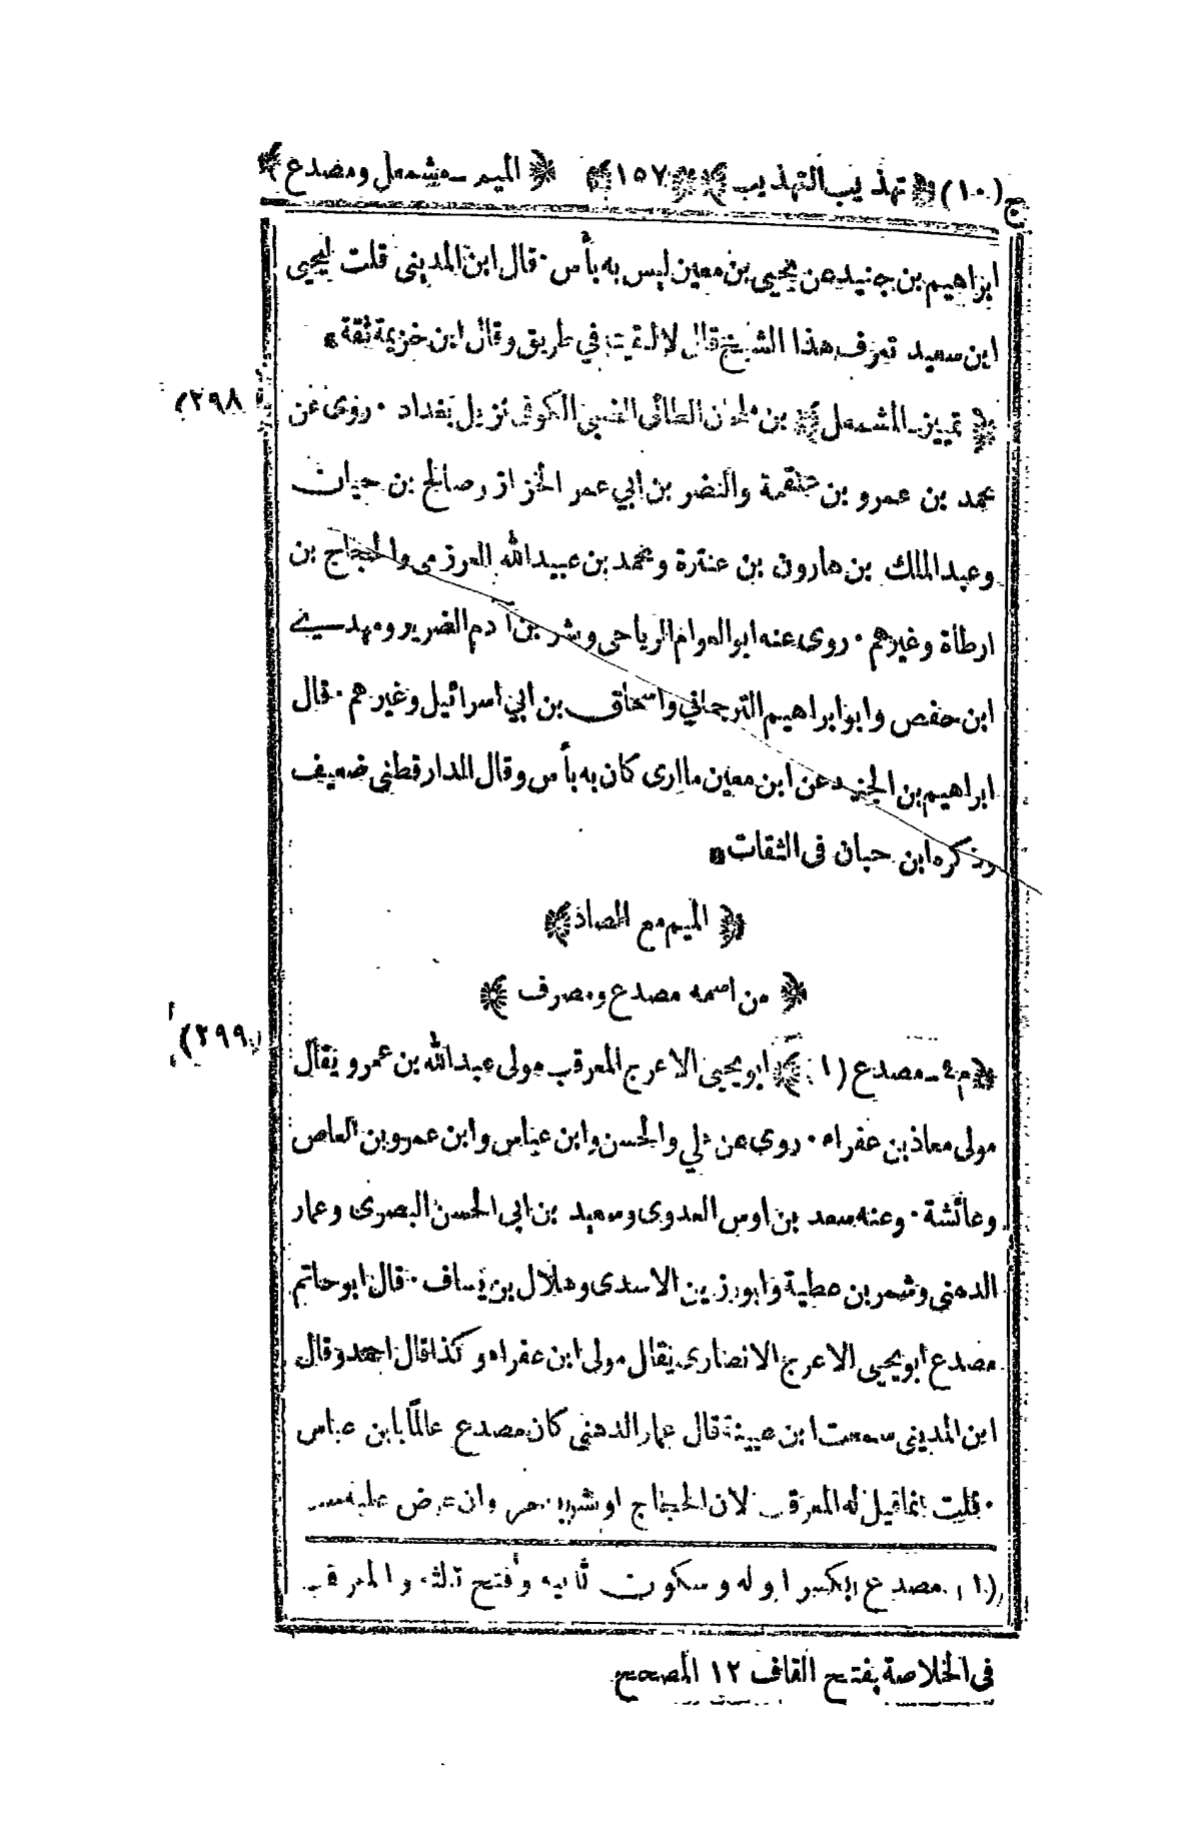 ج (١٠) ﴿ تهذيب التهذيب ﴾ ﴿ ١٥٧ ﴾ ﴿ الميم ـ مشمعل ومصدع ﴾
ابراهيم بن جنيد عن يحيى بن معين ليس به بأس · قال ابن المديني قلت ليحيى
ابن سعيد تعرف هذا الشيخ قال لا لقيته في طريق وقال ابن خزيمة ثقة
(٢٩٨)
﴿ تمييز ـ المشمعل ﴾ بن ملحان الطائى الضبي الكوفى نزيل بغداد · روى عن
محمد بن عمرو بن علقمة والنضر بن ابي عمر الخزاز وصالح بن حيان
وعبد الملك بن هارون بن عنترة ومحمد بن عبيد الله العرزمى والحجاج بن
ارطاة وغيرهم · روى عنه ابو العوام الرياحى وبشر بن آدم الضرير ومهدي
ابن حفص وابو ابراهيم الترجماني واسحاق بن ابي اسرائيل وغيرهم · قال
ابراهيم بن الجنيد عن ابن معين ما ارى كان به بأس وقال الدارقطنى ضعيف
وذكره ابن حبان فى الثقات
﴿ الميم مع الصاد ﴾
﴿ من اسمه مصدع ومصرف ﴾
(٢٩٩)
﴿ م٤ ـ مصدع (١) ﴾ ابو يحيى الاعرج المعرقب مولى عبد الله بن عمرو يقال
مولى معاذ بن عفراء · روى عن علي والحسن وابن عباس وابن عمرو بن العاص
وعائشة · وعنه سعد بن اوس العدوى وسعيد بن ابي الحسن البصرى وعمار
الدهنى وشمر بن عطية وابو رزين الاسدى وهلال بن يساف · قال ابو حاتم
مصدع ابو يحيى الاعرج الانصارى يقال مولى ابن عفراء وكذا قال احمد وقال
ابن المديني سمعت ابن عيينة قال عمار الدهنى كان مصدع عالمًا بابن عباس
· قلت انما قيل له المعرقب لان الحجاج او بشر بن مروان عرض عليه سب
(١) مصدع بكسر اوله وسكون ثانيه وفتح ثالثه والمعرقب
فى الخلاصة بفتح القاف ١٢ المصحح